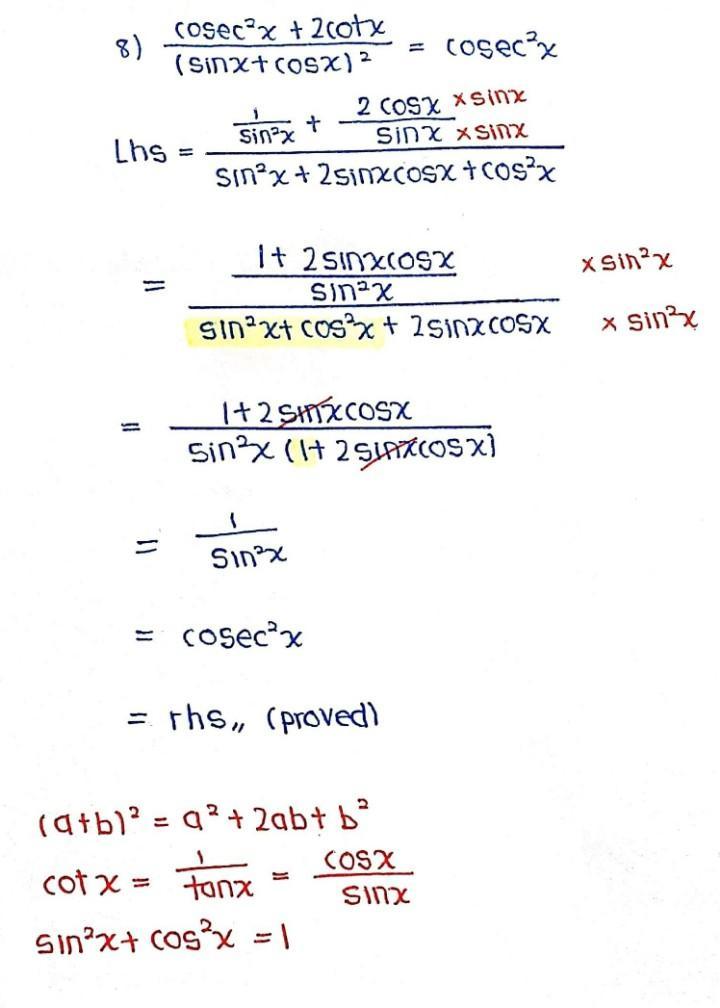 8) (cosec²x + 2cotx) / (sinx + cosx)² = cosec²x
Lhs = (1/sin²x + (2 cosx × sinx)/(sinx × sinx)) / (sin²x + 2sinxcosx + cos²x)
= ((1 + 2sinxcosx)/sin²x) / (sin²x + cos²x + 2sinxcosx) × sin²x / × sin²x
= (1 + 2sinxcosx) / (sin²x (1 + 2sinxcosx))
= 1/sin²x
= cosec²x
= rhs,, (proved)
(a+b)² = a² + 2ab + b²
cot x = 1/tanx = cosx/sinx
sin²x + cos²x = 1